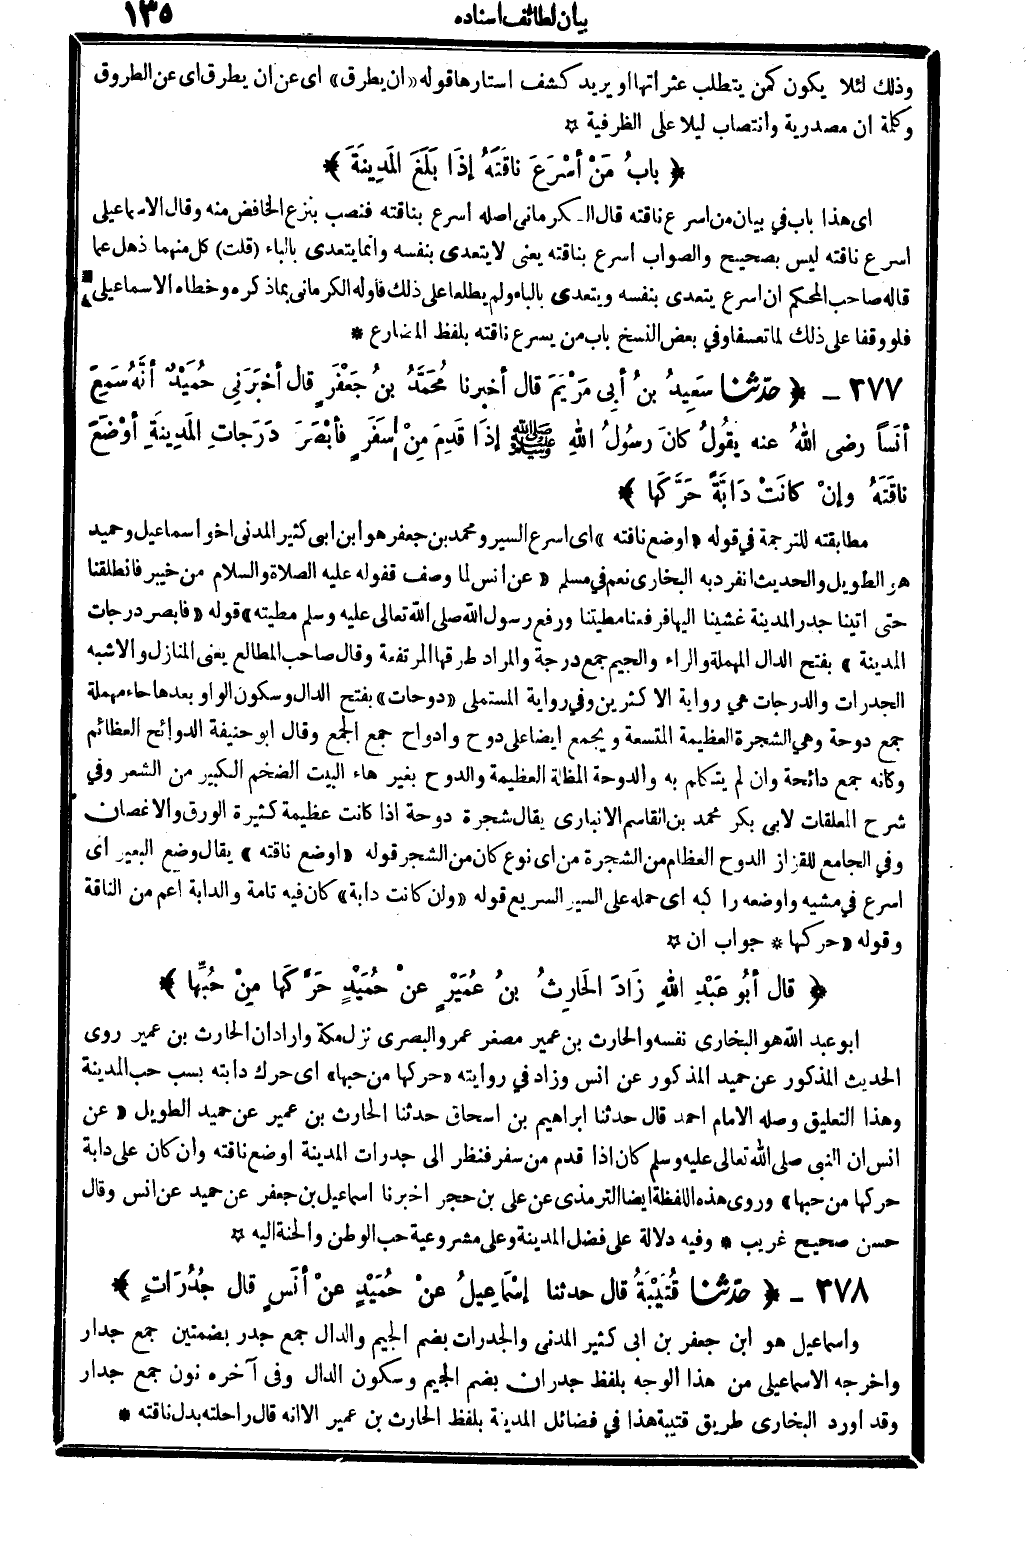 بيان لطائف اسناده ١٣٥
وذلك لئلا يكون كمن يتطلب عثراتها او يريد كشف استارها قوله «ان يطرق» اى عن ان يطرق اى عن الطروق
وكلمة ان مصدرية وانتصاب ليلا على الظرفية ☆
﴿ بابُ مَنْ أسْرَعَ ناقَتَهُ إذَا بَلَغَ المَدِينَةَ ﴾
اى هذا باب في بيان من اسرع ناقته قال الكرمانى اصله اسرع بناقته فنصب بنزع الخافض منه وقال الاسماعيلى
اسرع ناقته ليس بصحيح والصواب أسرع بناقته يعنى لا يتعدى بنفسه وانما يتعدى بالباء (قلت) كل منهما ذهل عما
قاله صاحب المحكم ان اسرع يتعدى بنفسه ويتعدى بالباء ولم يطلعا على ذلك فاوله الكرمانى بما ذكره وخطاه الاسماعيلى
فلو وقفا على ذلك لما تعسفا وفي بعض النسخ باب من يسرع ناقته بلفظ المضارع *
٣٧٧ ـ ﴿ حدّثنا سَعِيدُ بنُ أبى مَرْيَمَ قال أخبرنا مُحَمَّدُ بنُ جَعْفَرٍ قال أخبَرَنِى حُمَيْدٌ أنَّهُ سَمِعَ
أنَساً رضى اللهُ عنه يقُولُ كانَ رسُولُ اللهِ ﷺ إذَا قَدِمَ مِنْ سَفَرٍ فأبْصَرَ دَرَجاتِ المَدِينَةِ أوْضَعَ
ناقَتَهُ وإنْ كانَتْ دَابَّةً حَرَّكَها ﴾
مطابقته للترجمة في قوله «اوضع ناقته» اى اسرع السير ومحمد بن جعفر هو ابن ابى كثير المدنى اخو اسماعيل وحميد
هو الطويل والحديث انفرد به البخارى نعم في مسلم «عن انس لما وصف قفوله عليه الصلاة والسلام من خيبر فانطلقنا
حتى اتينا جدر المدينة غشينا اليها فرفعنا مطيتنا ورفع رسول الله صلى الله تعالى عليه وسلم مطيته» قوله «فابصر درجات
المدينة» بفتح الدال المهملة والراء والجيم جمع درجة والمراد طرقها المرتفعة وقال صاحب المطالع يعنى المنازل والاشبه
الجدرات والدرجات هي رواية الاكثرين وفي رواية المستملى «دوحات» بفتح الدال وسكون الواو بعدها حاء مهملة
جمع دوحة وهي الشجرة العظيمة المتسعة ويجمع ايضا على دوح وادواح جمع الجمع وقال ابو حنيفة الدوائح العظائم
وكانه جمع دائحة وان لم يتكلم به والدوحة المظلة العظيمة والدوح بغير هاء البيت الضخم الكبير من الشعر وفي
شرح المعلقات لابى بكر محمد بن القاسم الانبارى يقال شجرة دوحة اذا كانت عظيمة كثيرة الورق والاغصان
وفي الجامع للقزاز الدوح العظام من الشجرة من اى نوع كان من الشجر قوله «اوضع ناقته» يقال وضع البعير أى
اسرع في مشيه واوضعه راكبه اى حمله على السير السريع قوله «وان كانت دابة» كان فيه تامة والدابة اعم من الناقة
وقوله «حركها * جواب ان ☆
﴿ قال أبُو عَبْدِ اللهِ زَادَ الحَارِثُ بنُ عُمَيْرٍ عنْ حُمَيْدٍ حَرَّكَها مِنْ حُبِّها ﴾
ابو عبد الله هو البخارى نفسه والحارث بن عمير مصغر عمرو البصرى نزل مكة واراد ان الحارث بن عمير روى
الحديث المذكور عن حميد المذكور عن انس وزاد في روايته «حركها من حبها» اى حرك دابته بسب حب المدينة
وهذا التعليق وصله الامام احمد قال حدثنا ابراهيم بن اسحاق حدثنا الحارث بن عمير عن حميد الطويل «عن
انس ان النبى صلى الله تعالى عليه وسلم كان اذا قدم من سفر فنظر الى جدرات المدينة اوضع ناقته وان كان على دابة
حركها من حبها» وروى هذه اللفظة ايضا الترمذى عن على بن حجر اخبرنا اسماعيل بن جعفر عن حميد عن انس وقال
حسن صحيح غريب * وفيه دلالة على فضل المدينة وعلى مشروعية حب الوطن والحنة اليه ☆
٣٧٨ ـ ﴿ حدّثنا قُتَيْبَةُ قال حدثنا إسْماعِيلُ عنْ حُمَيْدٍ عنْ أنَسٍ قال جُدُرَاتٍ ﴾
واسماعيل هو ابن جعفر بن ابى كثير المدنى والجدرات بضم الجيم والدال جمع جدر بضمتين جمع جدار
واخرجه الاسماعيلى من هذا الوجه بلفظ جدران بضم الجيم وسكون الدال وفى آخره نون جمع جدار
وقد اورد البخارى طريق قتيبة هذا في فضائل المدينة بلفظ الحارث بن عمير الا انه قال راحلته بدل ناقته *